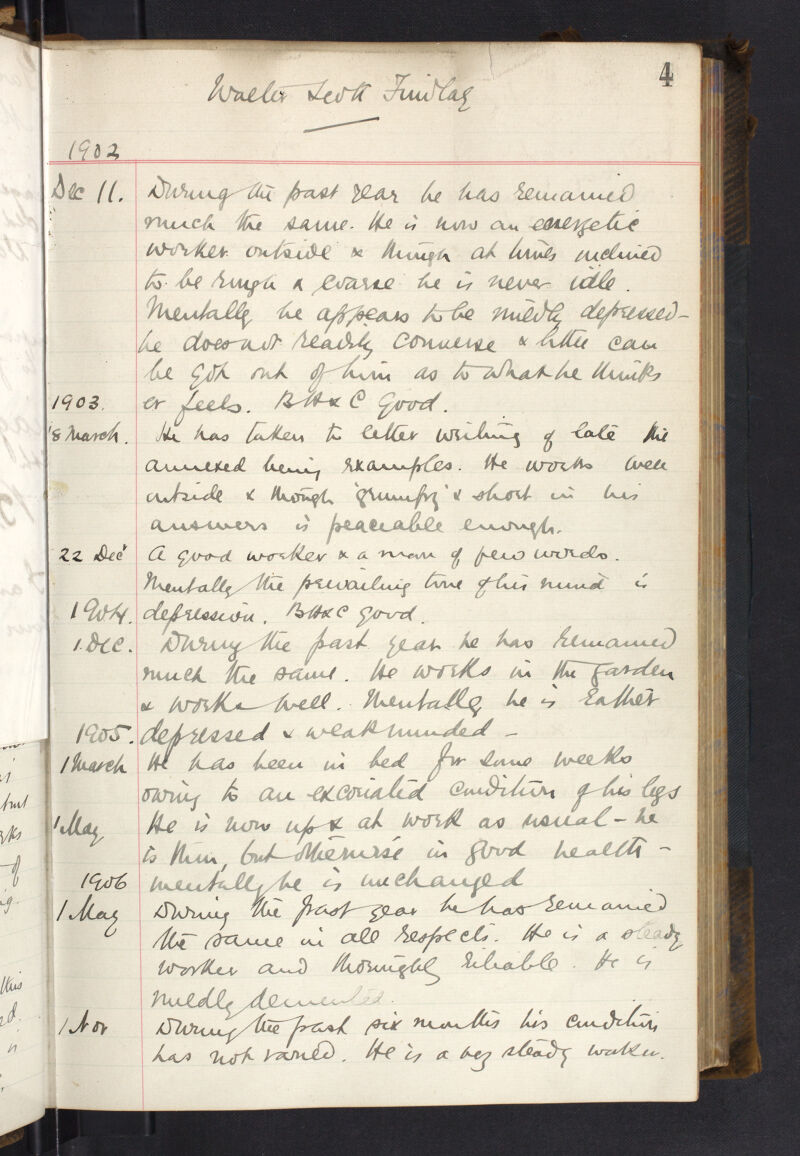 4
Walter Scott Findlay
1902
Dec 11. During the past year he has remained
much the same. He is now an energetic
worker outside & though at times inclined
to be rough & coarse he is never idle.
Mentally he appears to be mildly depressed -
he does not readily converse & little can
be got out of him as to what he thinks
1903. or feels. BH&C Good.
8 March. He has taken to letter writing of late the
annexed being examples. He works well
outside & though 'grumpy' & short in his
answers is peaceable enough.
22 Dec A good worker & a man of few words.
Mentally the prevailing tone of his mind is
1904. depression. BH&C good.
1. Dec. During the past year he has remained
much the same. He works in the garden
& works well. Mentally he is rather
1905. depressed & weakminded -
1 March He has been in bed for some weeks
owing to an excoriated condition of his legs
1 May He is now up & at work as usual - he
is thin, but otherwise in good health -
1906 mentally he is unchanged
1 May During the past year he has remained
the same in all respects. He is a steady
worker and thoroughly reliable. He is
mildly demented.
1 Nov During the past six months his condition
has not varied. He is a very steady worker.